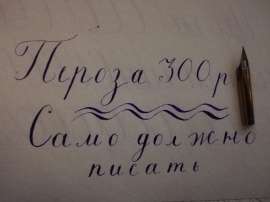 Перо за 300 р
Само должно
писать